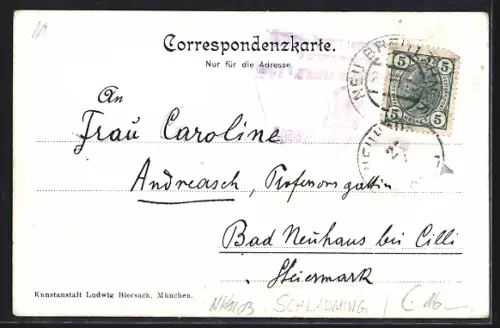 Correspondenzkarte.
Nur für die Adresse
NEU BREI
5 5
5 5
An
Frau Caroline
Andreasch, Professorsgattin
Bad Neuhaus bei Cilli
Steiermark
Kunstanstalt Ludwig Biersack, München.
SCHLADMING
16.-